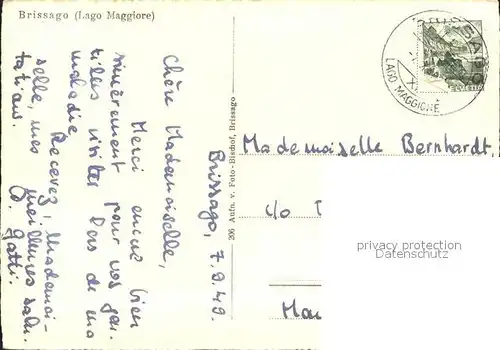 Brissago (Lago Maggiore)
Brissago, 7.9.49.
Chère Mademoiselle,
Merci encore bien
sincèrement pour vos gen-
tilles visites lors de ma
maladie.
Recevez, Mademoi-
selle, mes meilleures salu-
tations.
G. Gatti.
206 Aufn. v. Foto-Bischof, Brissago
LAGO MAGGIORE
Mademoiselle Bernhardt,
c/o
privacy protection
Datenschutz